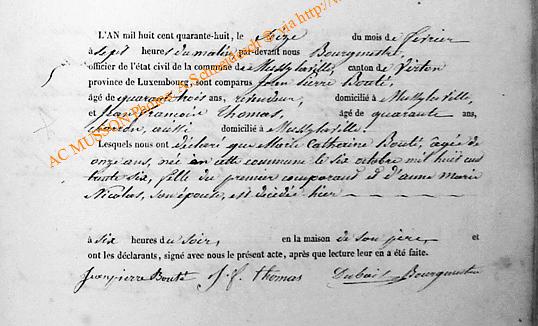 L'AN mil huit cent quarante-huit, le seize du mois de février
à sept heures du matin, par-devant nous Bourgmestre,
officier de l'état civil de la commune de Mussy la ville, canton de Virton
province de Luxembourg, sont comparus Jean Pierre Bouté,
âgé de quarante trois ans, revendeur, domicilié à Mussy la ville,
et Jean François Thomas, âgé de quarante ans,
charron, aussi domicilié à Mussy la ville.
Lesquels nous ont déclaré que Marie Catherine Bouté, âgée de
onze ans, née en cette commune le six octobre mil huit cent
trente six, fille du premier comparant et d'anne Marie
Nicolas, son épouse, est décédée hier
à six heures du soir, en la maison de son père, et
ont les déclarants, signé avec nous le présent acte, après que lecture leur en a été faite.
Jeanpierre Bouté J. f. thomas Dubois Bourgmestre
AC MUSSON Photos A Schmadtzch @ via http://w